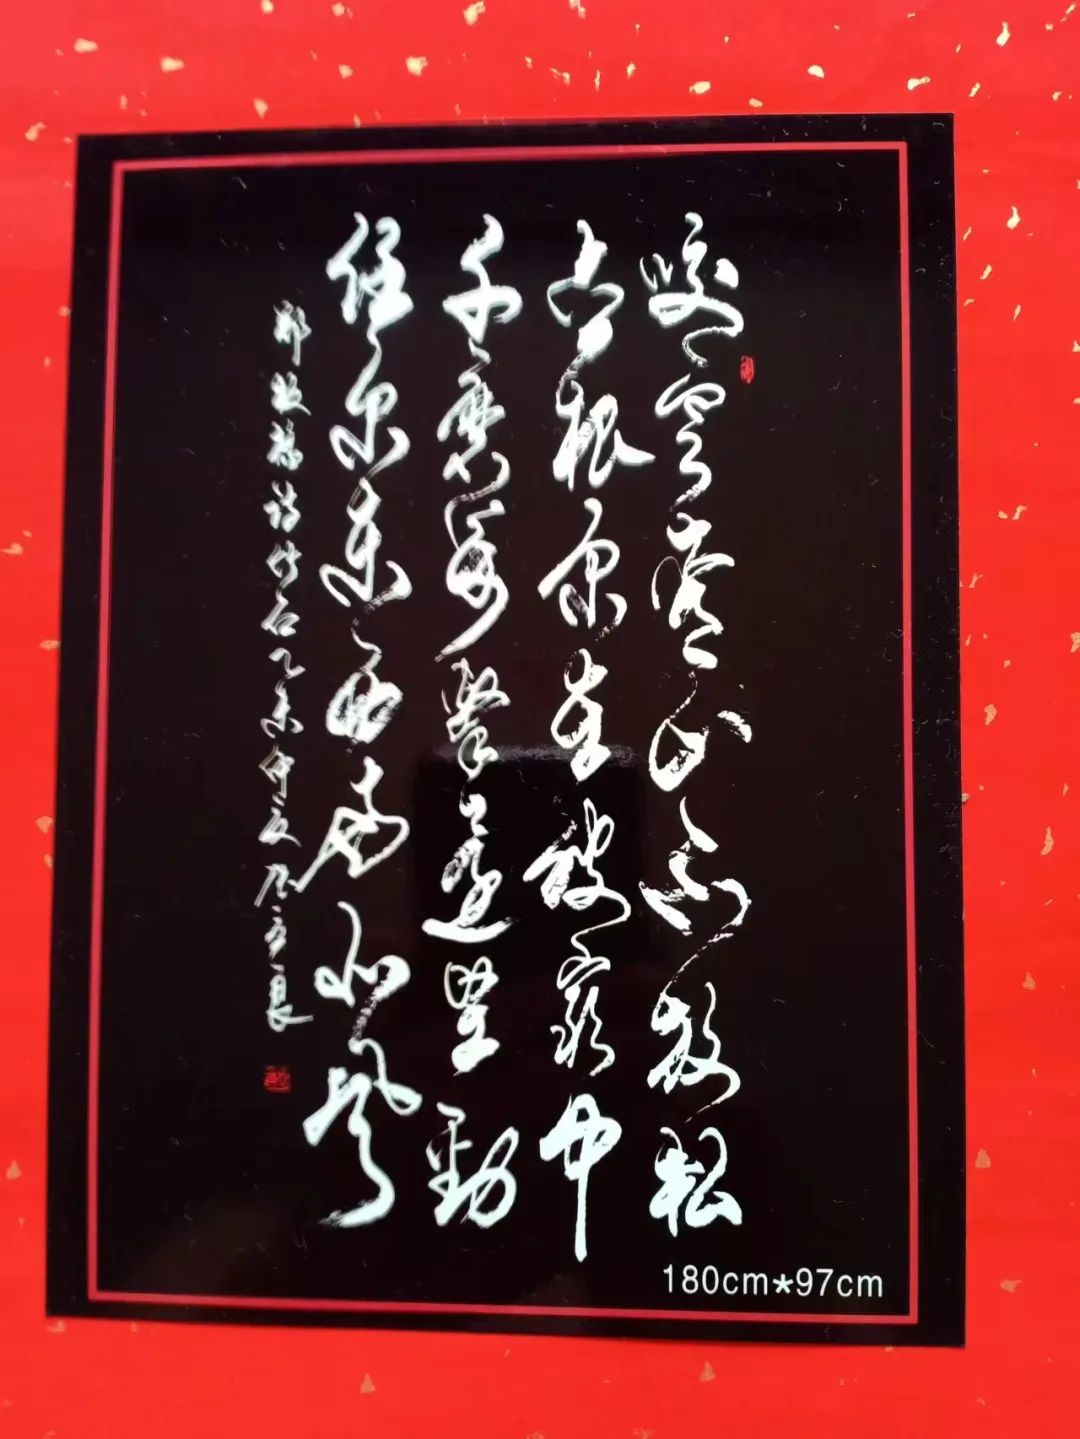 咬定青山不放松
立根原在破岩中
千磨萬擊還堅勁
任尔东西南北風
郑板桥诗竹石乙未仲夏
180cm*97cm